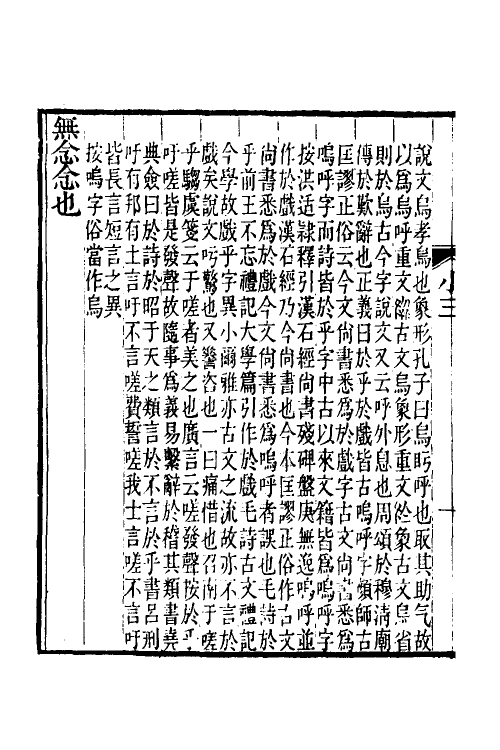 說文烏孝鳥也象形孔子曰烏盱呼也取其助气故
以爲烏呼重文𦾓古文烏象形重文於象古文烏省
則於烏古今字說文又云呼外息也周頌於穆淸廟
傳於歎辭也正義曰於乎於戲皆古嗚呼字顏師古
匡謬正俗云今文尙書悉爲於戲字古文尙書悉爲
嗚呼字而詩皆於乎字中古以來文籍皆爲嗚呼字
按洪适隸釋引漢石經尙書殘碑盤庚無逸嗚呼並
作於戲漢石經乃今尙書也今本匡謬正俗作古文
尙書悉爲於戲今文尙書悉爲嗚呼者誤也毛詩於
乎前王不忘禮記大學篇引作於戲毛詩古文禮記
今學故戲乎字異小爾雅亦古文之流故亦不言於
戲矣說文吁驚也又䜘咨也一曰痛惜也召南于嗟
乎騶虞箋云于嗟者美之也廣言云嗟發聲按於乎
吁嗟皆是發聲故隨事爲義易繫辭於稽其類書堯
典僉曰於詩於昭于天之類言於不言於乎書呂刑
吁有邦有土言吁不言嗟費誓嗟我士言嗟不言吁
皆長言短言之異
按嗚字俗當作烏
無念念也
小三